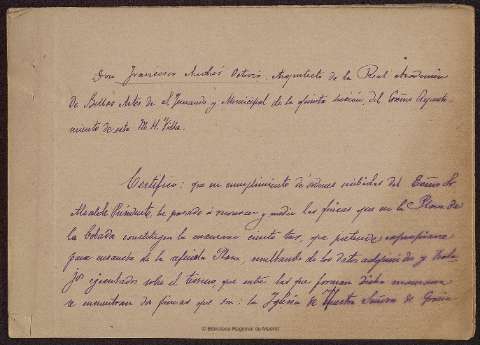 Don Francisco Andrés Octavio, Arquitecto de la Real Academia
de Bellas Artes de Sn Fernando y Municipal de la quinta sección, del Excmo Ayunta-
miento de esta M. H. Villa.
Certifico: que en cumplimiento de ordenes recibidas del Excmo Sr
Alcalde Presidente, he pasado á reconocer y medir las fincas que en la Plaza de
la Cebada constituyen la manzana ciento tres, que pretende expropiarse
para ensanche de la referida Plaza, resultando de los datos adquiridos y traba-
jos ejecutados sobre el terreno que entre las que forman dicha manzana
se encuentran dos fincas que son: la Iglesia de Nuestra Señora de Gracia
© Biblioteca Regional de Madrid